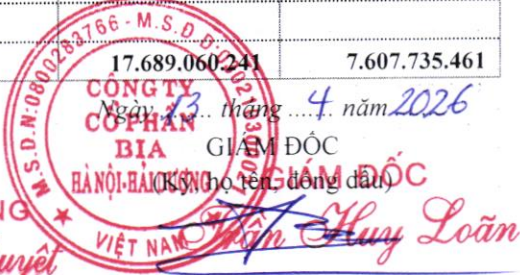 17.689.060.241 7.607.735.461
Ngày 13 tháng 4 năm 2026
GIÁM ĐỐC
(Ký, họ tên, đóng dấu)
GIÁM ĐỐC
Trần Huy Loãn
M.S.D.N:0800283766-M.S.D.Đ:
CÔNG TY
CỔ PHẦN
BIA
HÀ NỘI-HẢI DƯƠNG
VIỆT NAM
NG
uyệt